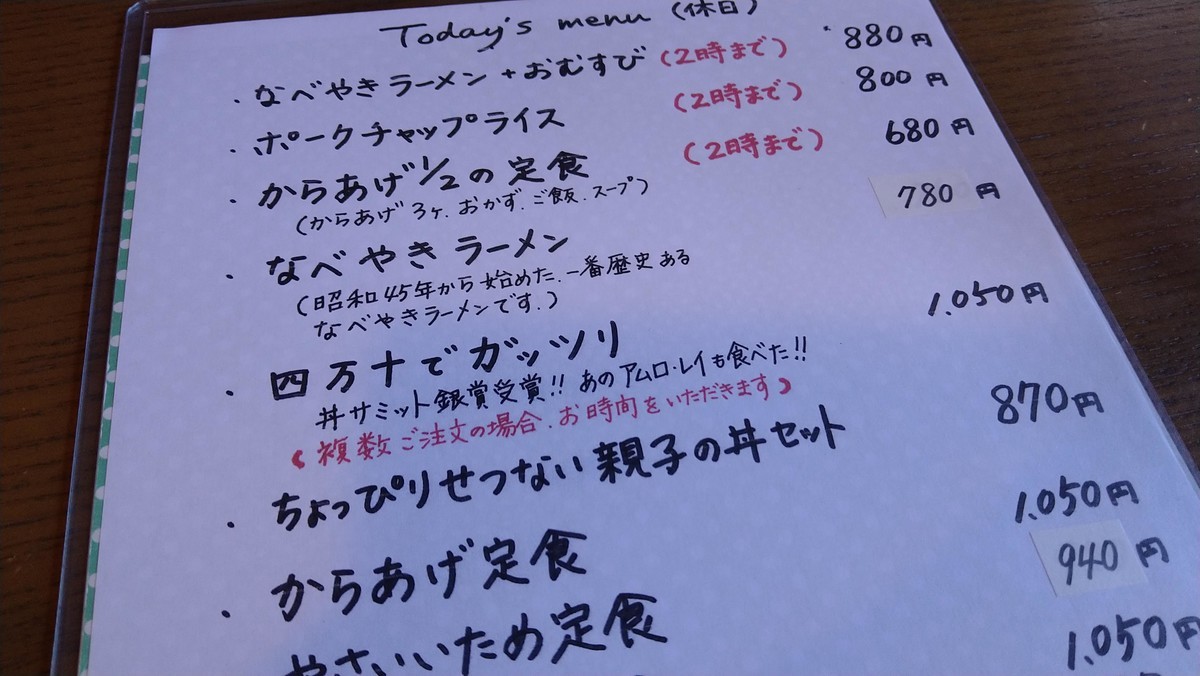 Today's menu (休日)
・なべやきラーメン+おむすび (2時まで) 880円
・ポークチャップライス (2時まで) 800円
・からあげ1/2の定食 (2時まで) 680円
(からあげ3ヶ.おかず.ご飯.スープ)
・なべやきラーメン 780円
(昭和45年から始めた.一番歴史ある
なべやきラーメンです.)
・四万十でガッツリ 1,050円
丼サミット銀賞受賞!! あのアムロ・レイも食べた!!
(複数ご注文の場合.お時間をいただきます)
・ちょっぴりせつない親子の丼セット 870円
・からあげ定食 1,050円
やさいいため定食 940円
1,050円